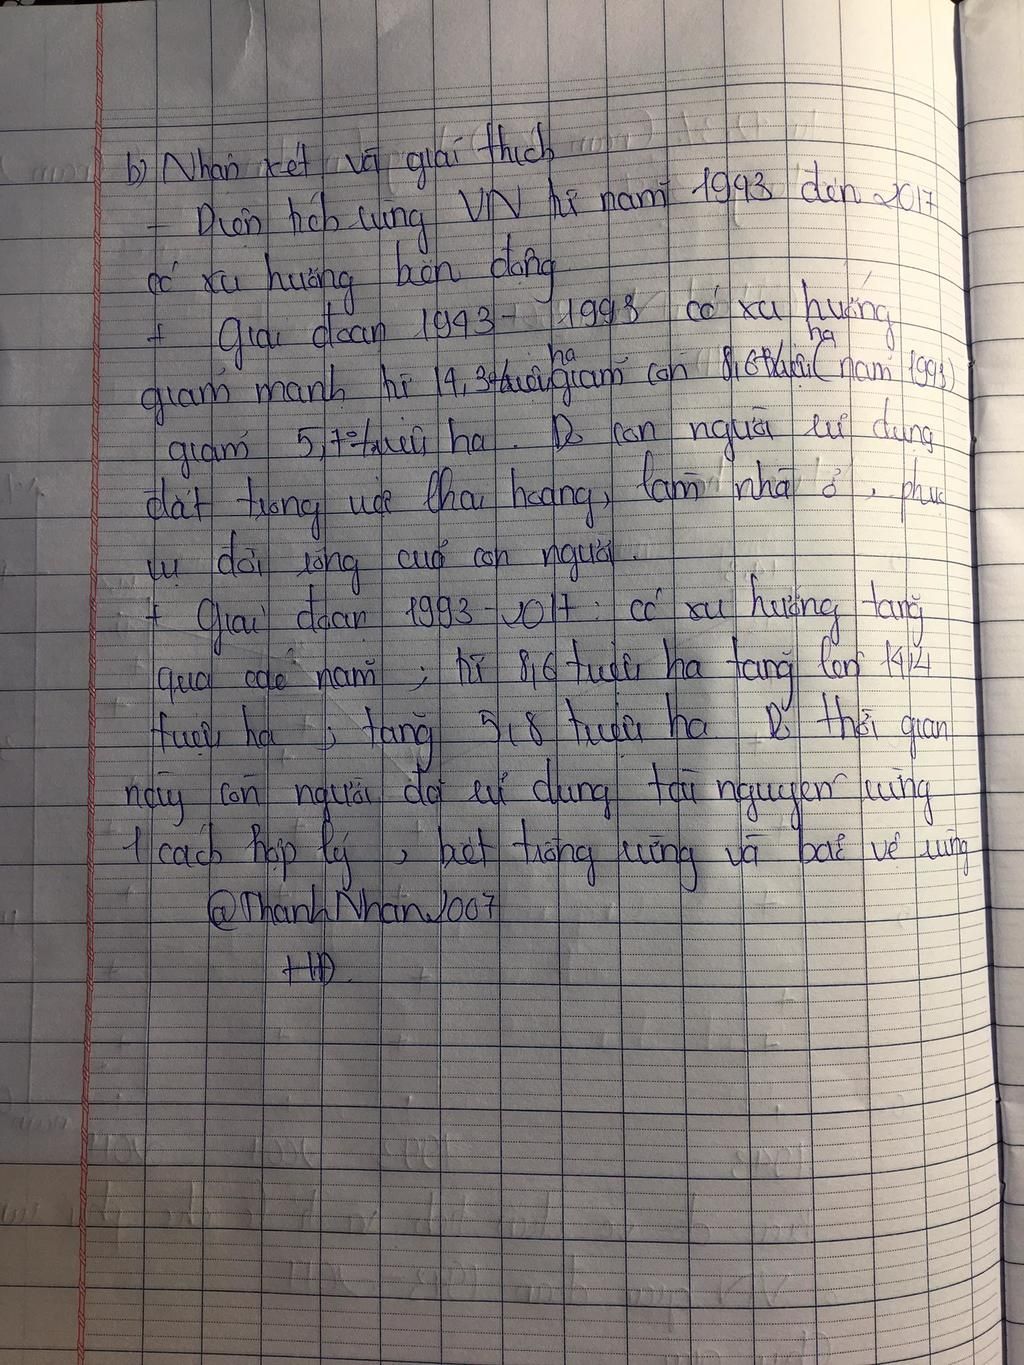 b) Nhận xét và giải thích
- Diện tích rừng VN từ năm 1993 đến 2017
có xu hướng biến động
+ Giai đoạn 1943 - 1993 có xu hướng
giảm mạnh từ 14,3 triệu ha giảm còn 8,6 triệu ha (năm 1993)
giảm 5,7 triệu ha. Do con người sử dụng
đất trong việc khai hoang, làm nhà ở, phục
vụ đời sống của con người.
+ Giai đoạn 1993 - 2017: có xu hướng tăng
qua các năm, từ 8,6 triệu ha tăng lên 14,4
triệu ha, tăng 5,8 triệu ha Do thời gian
này con người đã sử dụng tài nguyên rừng
1 cách hợp lý, biết trồng rừng và bảo vệ rừng
@ThanhNhan2007
HĐ